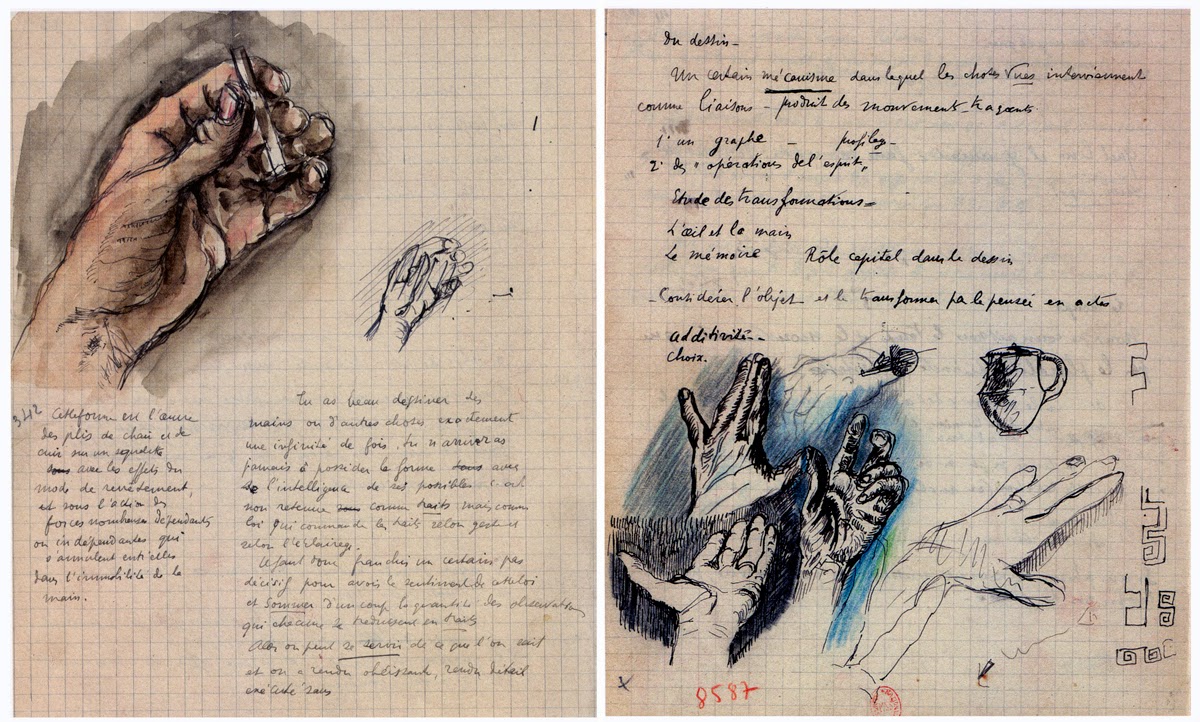 342 Cette forme est l'œuvre
des plis de chair et de
cuir sur un squelette
sous avec les effets du
mode de revêtement,
et sous l'action des
forces nombreuses dépendantes
ou indépendantes qui
s'annulent entr'elles
dans l'immobilité de la
main.
Tu as beau dessiner des
mains ou d'autres choses exactement
une infinité de fois, tu n'arriveras
jamais à posséder la forme avec
l'intelligence de ses possibles c. à d.
non retenue comme traits mais comme
loi qui commande les traits selon gestes et
selon l'éclairage.
Il faut donc franchir un certain pas
décisif pour avoir le sentiment de cette loi
et sommer d'un coup la quantité des observations
qui chacune se traduisent en traits
Alors on peut se servir de ce que l'on sait
et on a rendu obéissant, rendu détail
exécuté sans
Du dessin -
Un certain mécanisme dans lequel les choses vues interviennent
comme liaisons - produit des mouvements traçants
1° un graphe - profilage -
2° des "opérations de l'esprit"
Etude des transformations =
L'œil et la main
La mémoire Rôle capital dans le dessin
- Considérer l'objet et le transformer par la pensée en actes
additivité -
choix.
x
8587